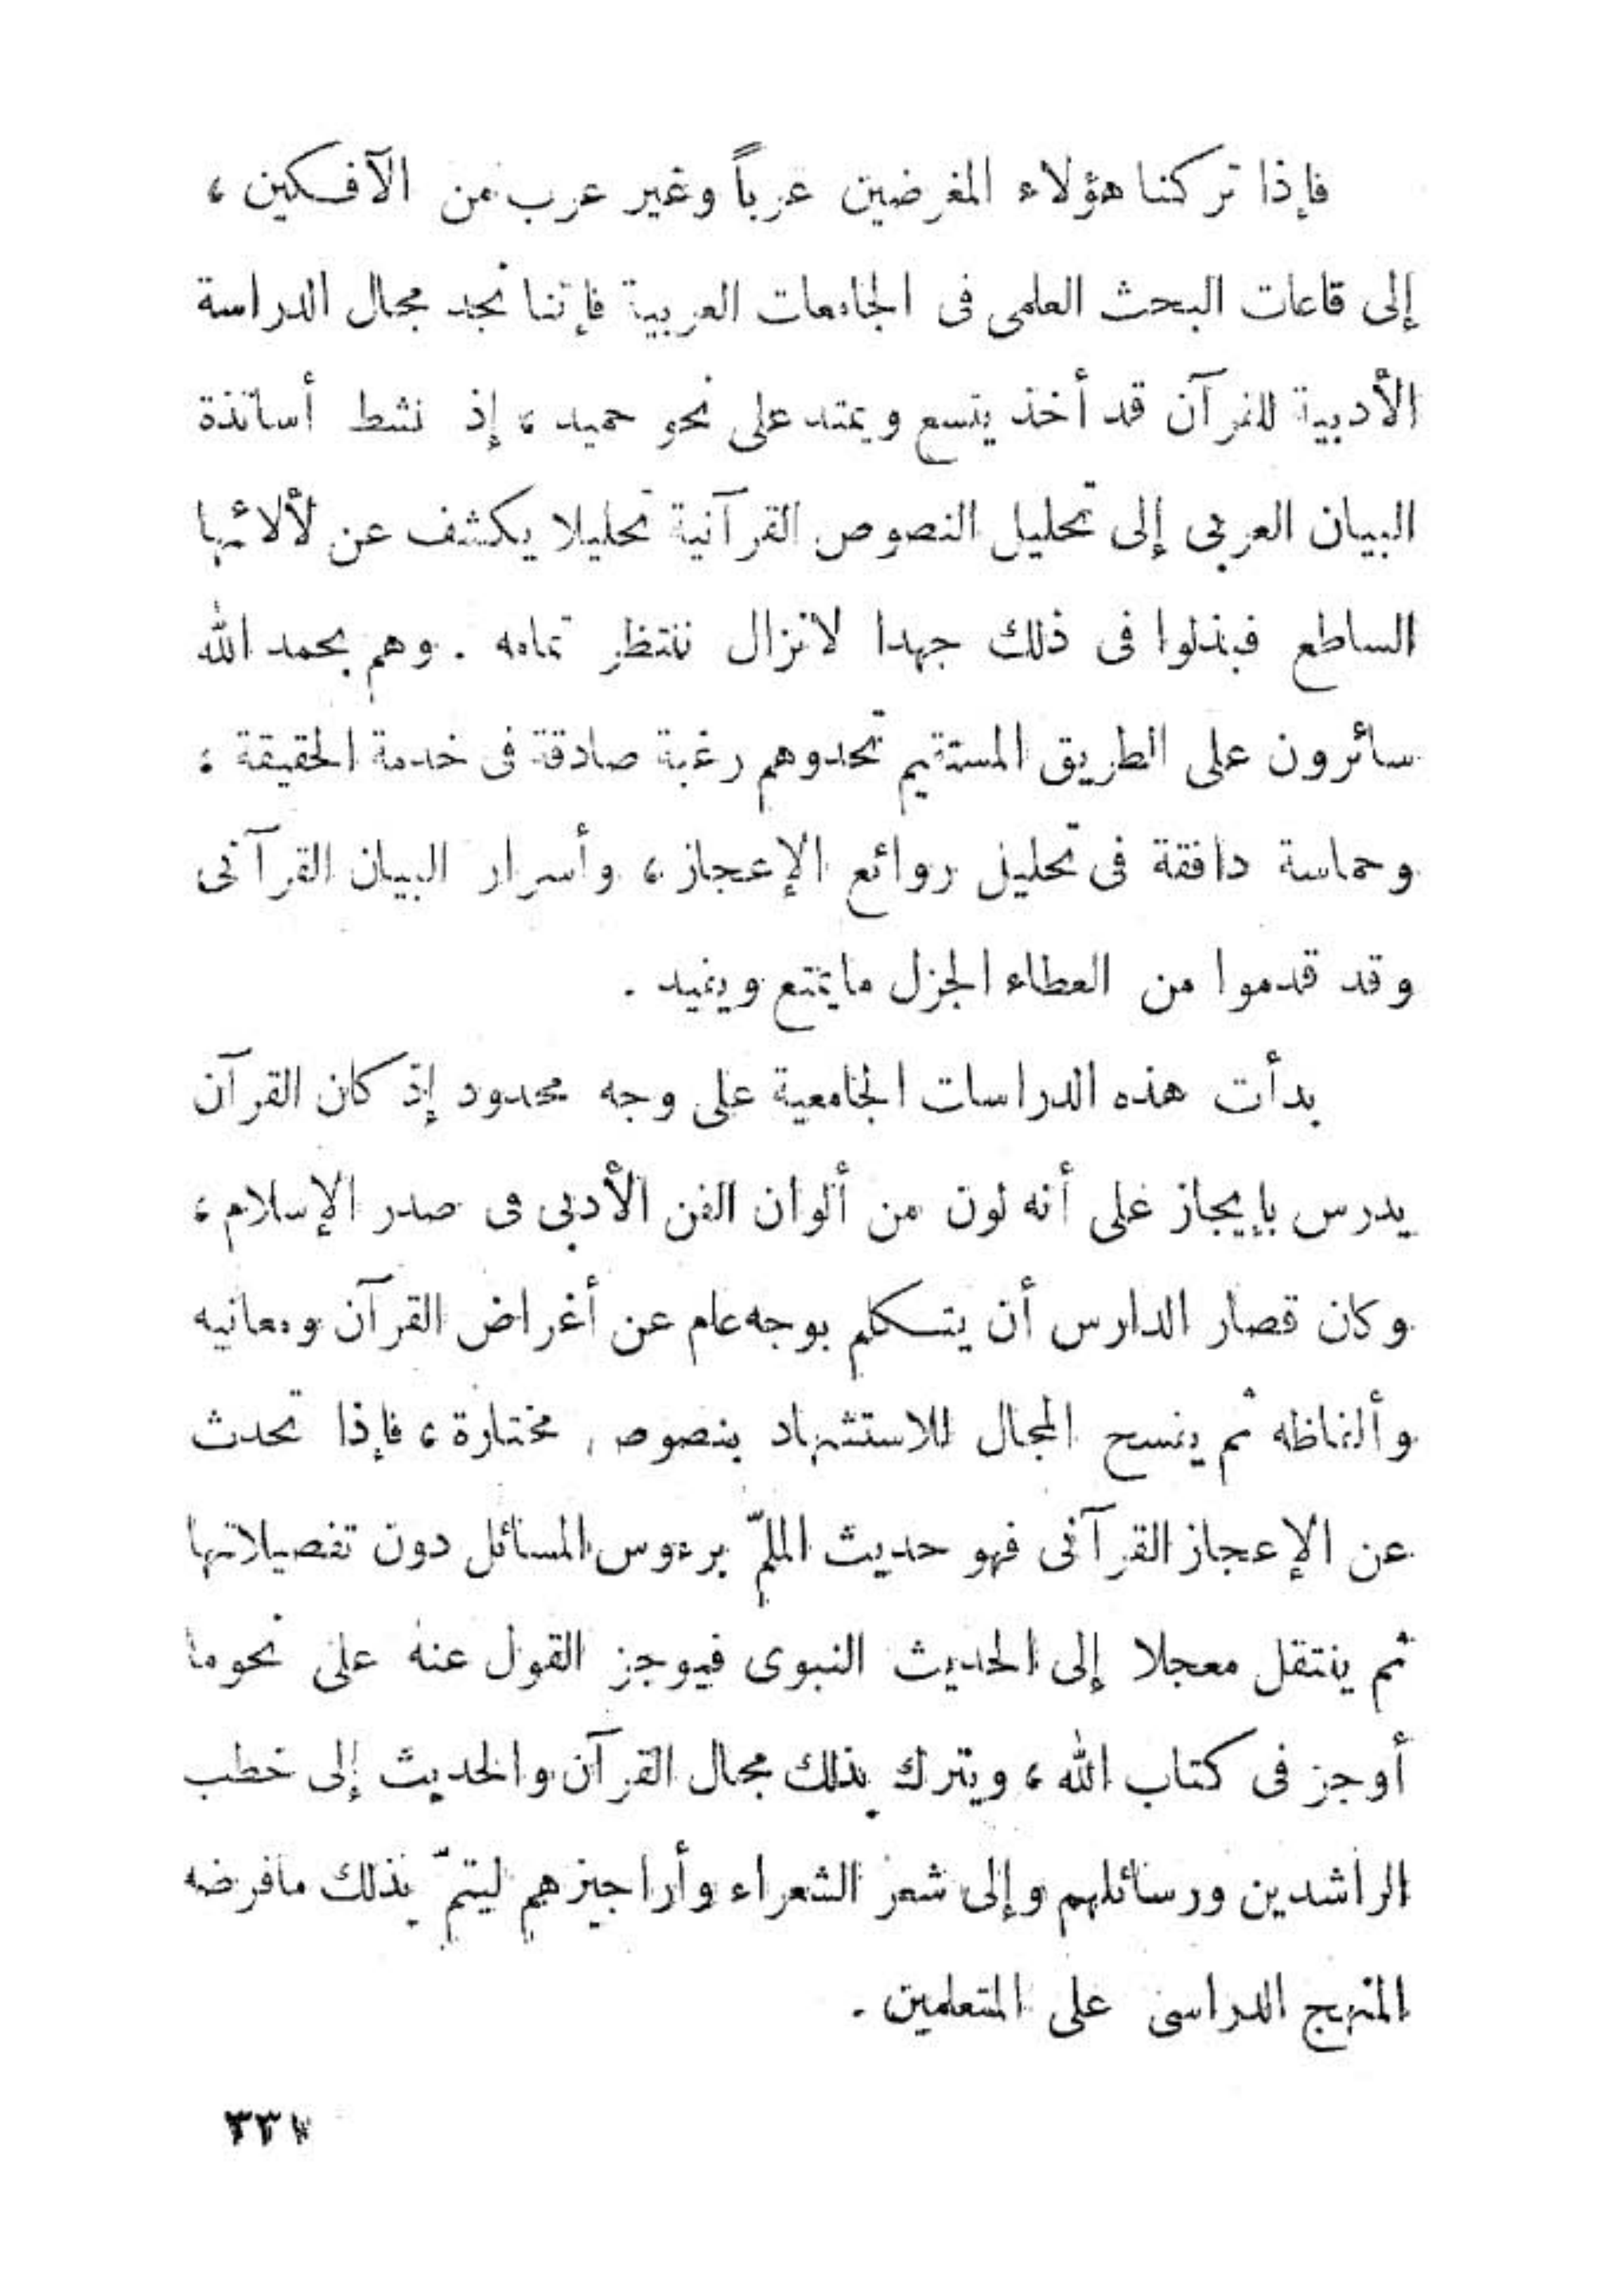 فإذا تركنا هؤلاء المغرضين عرباً وغير عرب من الآفكين ،
إلى قاعات البحث العلمى فى الجامعات العربية فإننا نجد مجال الدراسة
الأدبية للقرآن قد أخذ يتسع ويمتد على نحو حميد ، إذ نشط أساتذة
البيان العربى إلى تحليل النصوص القرآنية تحليلا يكشف عن لألائها
الساطع فبذلوا فى ذلك جهدا لانزال ننتظر تمامه . وهم بحمد الله
سائرون على الطريق المستقيم تحدوهم رغبة صادقة فى خدمة الحقيقة ؛
وحماسة دافقة فى تحليل روائع الإعجاز ، وأسرار البيان القرآنى
وقد قدموا من العطاء الجزل مايمتع ويفيد .
بدأت هذه الدراسات الجامعية على وجه محدود إذ كان القرآن
يدرس بإيجاز على أنه لون من ألوان الفن الأدبى فى صدر الإسلام ،
وكان قصار الدارس أن يتكلم بوجه عام عن أغراض القرآن ومعانيه
وألفاظه ثم يفسح المجال للاستشهاد بنصوص مختارة ، فإذا تحدث
عن الإعجاز القرآنى فهو حديث الملمّ برءوس المسائل دون تفصيلاتها
ثم ينتقل معجلا إلى الحديث النبوى فيوجز القول عنه على نحوما
أوجز فى كتاب الله ، ويترك بذلك مجال القرآن والحديث إلى خطب
الراشدين ورسائلهم وإلى شعر الشعراء وأراجيزهم ليتمّ بذلك مافرضه
المنهج الدراسى على المتعلمين .
٣٣١